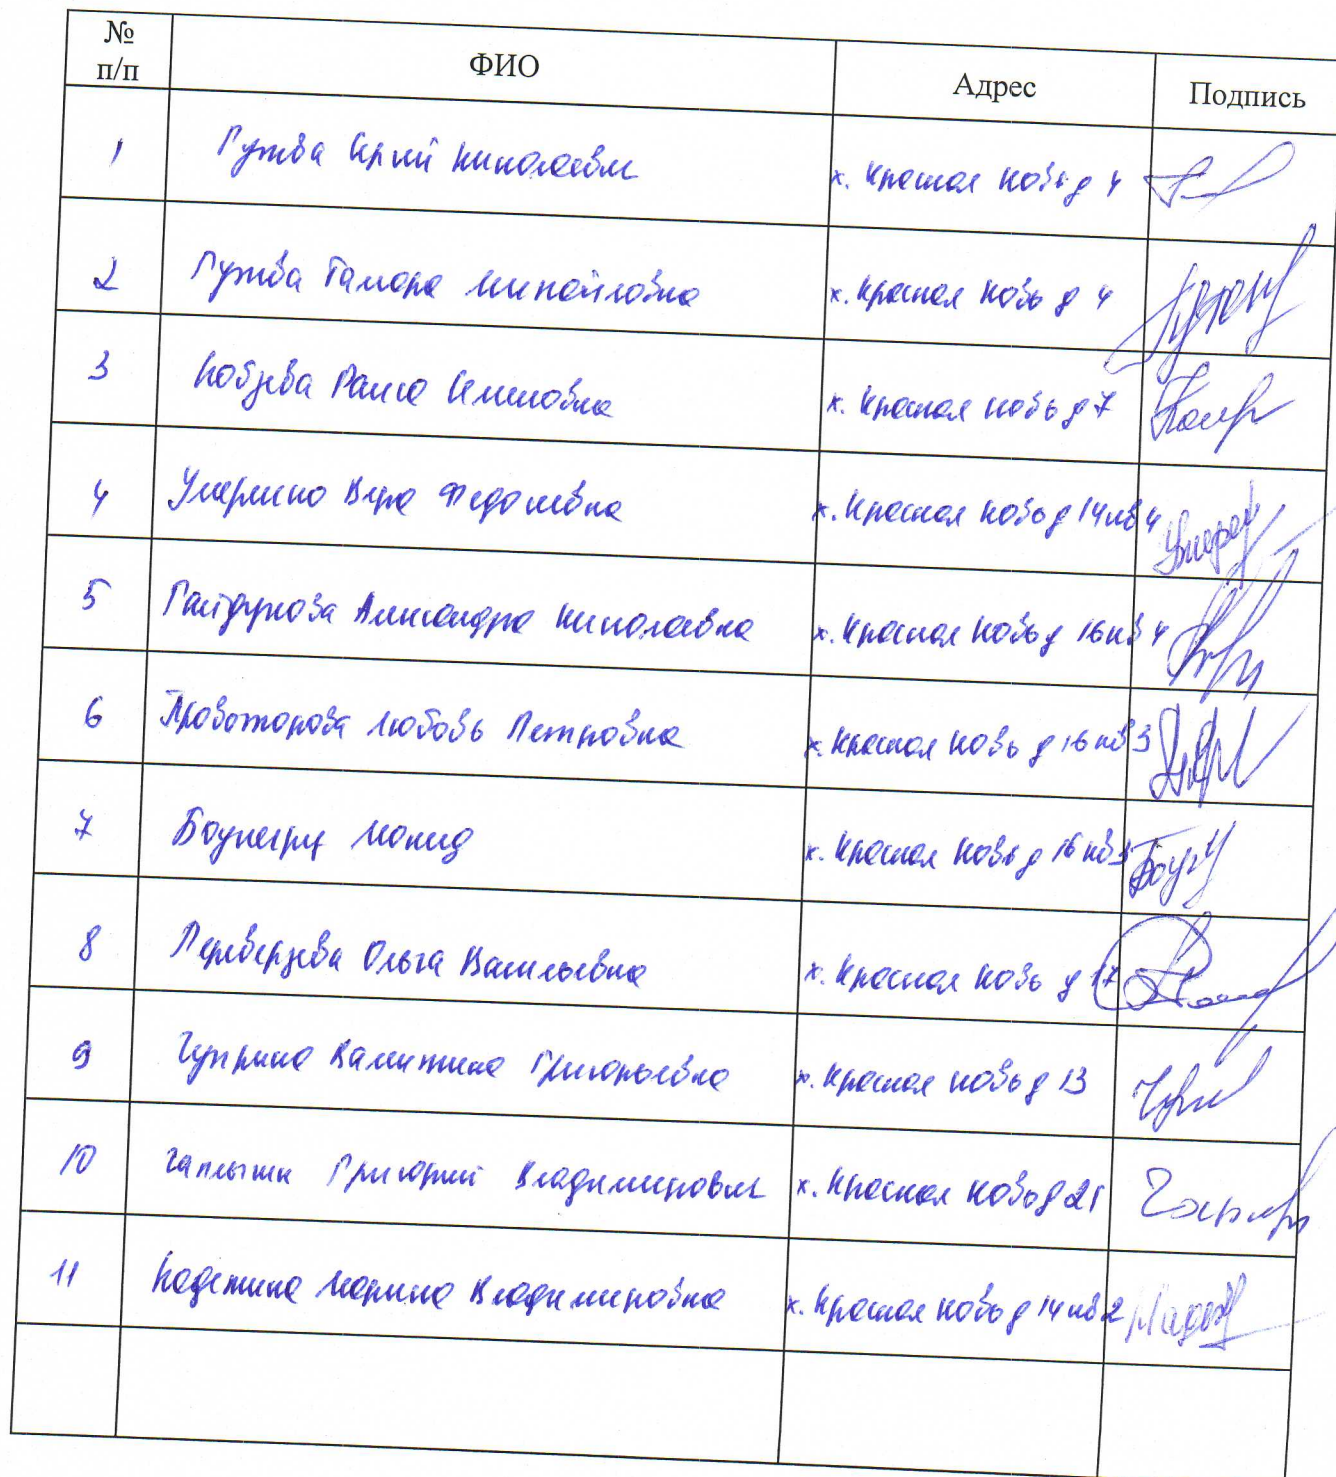 № п/п ФИО Адрес Подпись
1 Гужва Николаевич х. Красная Новь д 4
2 Гужва Тамара Михайловна х. Красная Новь д 4
3 Кобзева Раиса Семеновна х. Красная Новь д 7
4 Вера Федоровна х. Красная Новь д 14 кв 4
5 Гайдукова Александра Николаевна х. Красная Новь д 16 кв 4
6 Провоторова Любовь Петровна х. Красная Новь д 16 кв 3
7 х. Красная Новь д 16 кв 3
8 Переверзева Ольга Васильевна х. Красная Новь д 17
9 Чуприна Валентина Григорьевна х. Красная Новь д 13
10 Григорий Владимирович х. Красная Новь д 21
11 Марина Владимировна х. Красная Новь д 14 кв 2